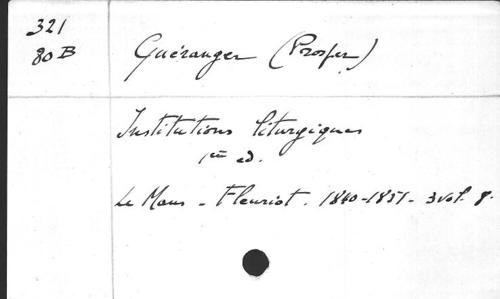 321
80 B
Guéranger (Prosper)
Institutions liturgiques
1ère ed.
Le Mans - Fleuriot. 1840-1851 - 3 vol. 8.